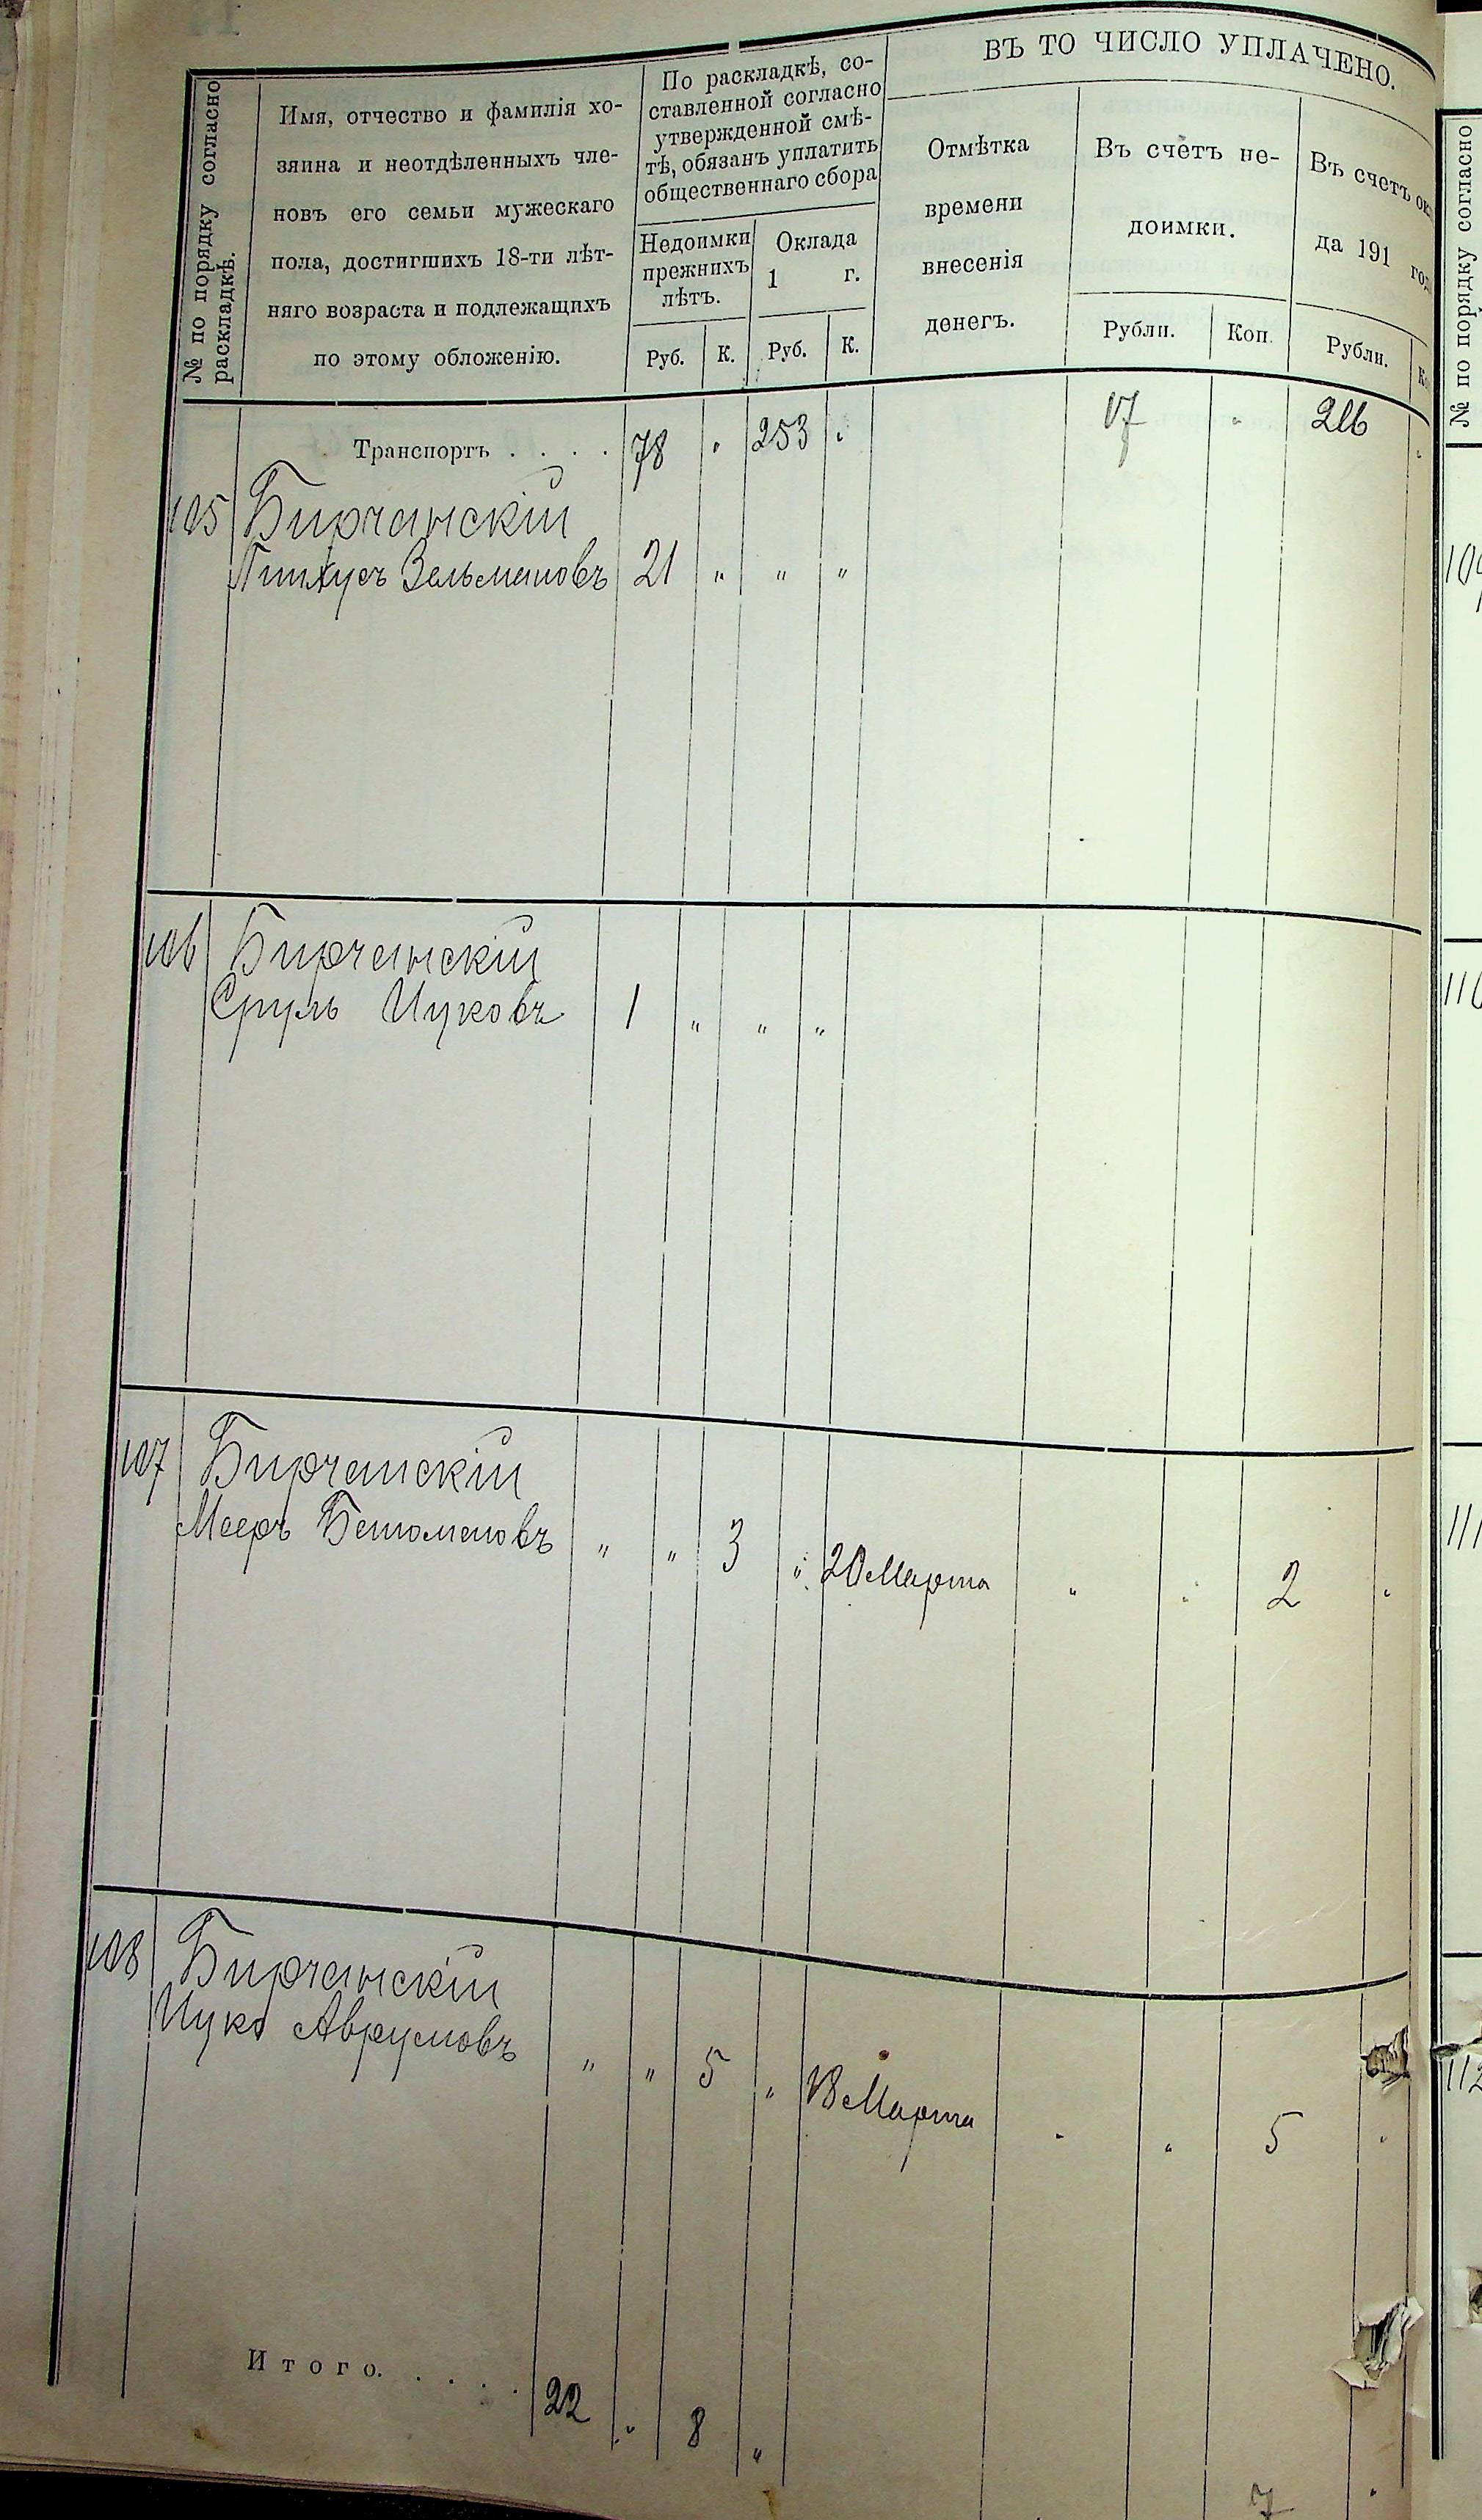 ВЪ ТО ЧИСЛО УПЛАЧЕНО.
№ по порядку согласно
раскладкѣ.
Имя, отчество и фамилія хо-
зяина и неотдѣленныхъ чле-
новъ его семьи мужескаго
пола, достигшихъ 18-ти лѣт-
няго возраста и подлежащихъ
по этому обложенію.
По раскладкѣ, со-
ставленной согласно
утвержденной смѣ-
тѣ, обязанъ уплатить
общественнаго сбора
Недоимки
прежнихъ
лѣтъ.
Оклада
1 г.
Руб. К. Руб. К.
Отмѣтка
времени
внесенія
денегъ.
Въ счетъ не-
доимки.
Рубли. Коп.
Въ счетъ ок
да 191 год
Рубли. Ко
№ по порядку согласно
Транспортъ . . . . 78 " 253 " 17 " 216 "
105 Бирчанскій
Пинхусъ Зельмановъ 21 " " "
109
106 Бирчанскій
Сруль Ицковъ 1 " " "
110
107 Бирчанскій
Мееръ Бенюменовъ " " 3 " 20 Марта " " 2 "
111
108 Бирчанскій
Ицко Аврумовъ " " 5 " 13 Марта " " 5 "
112
Итого. . . . . 22 " 8 "
7 "